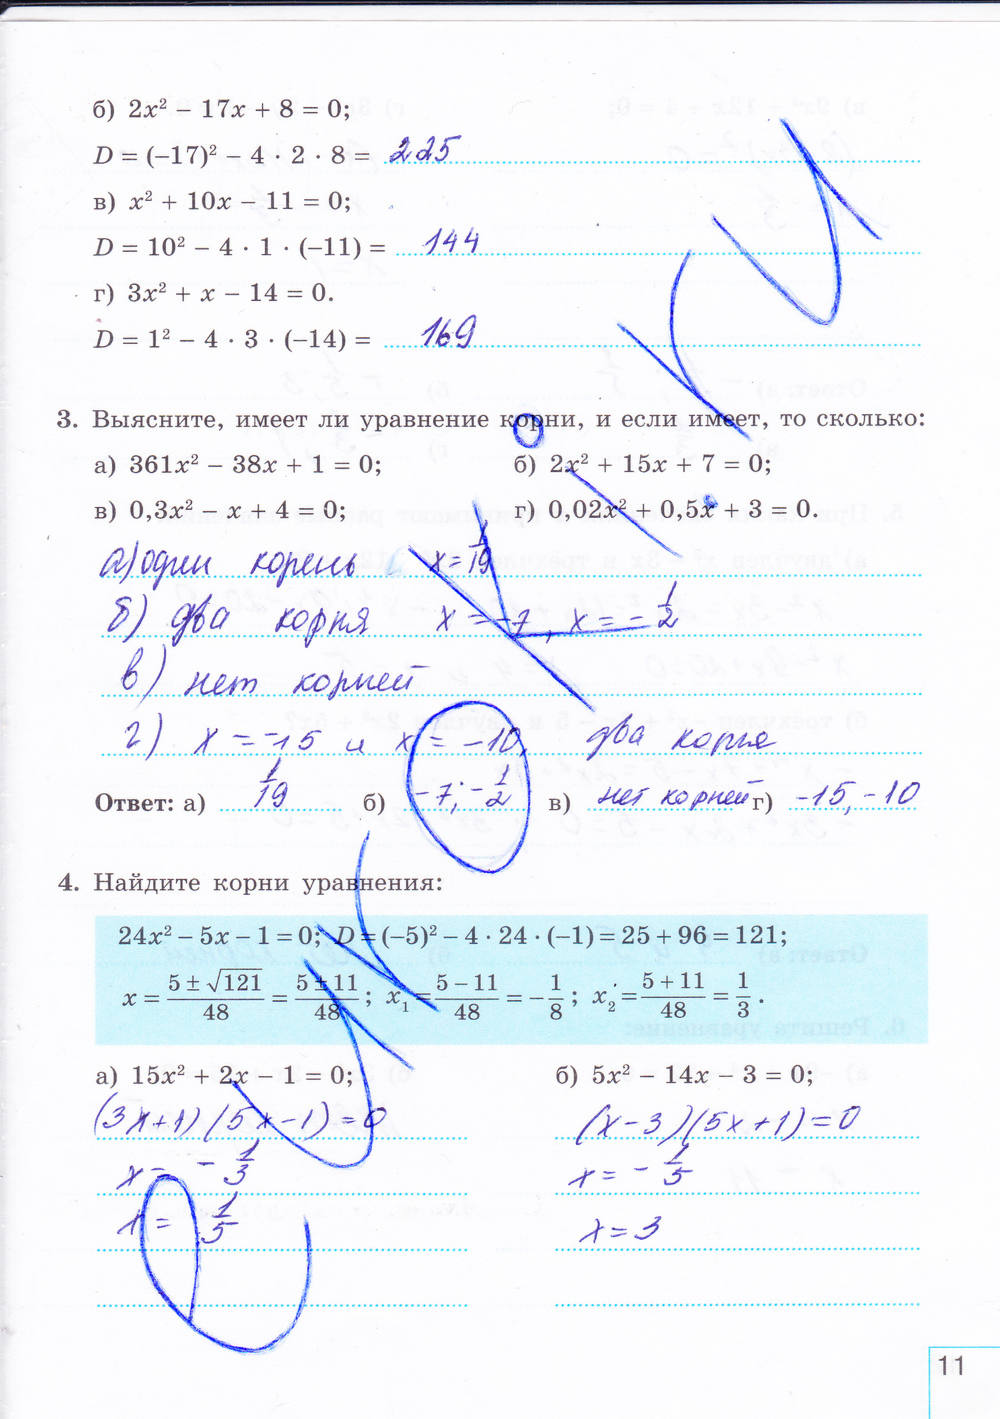 б) 2x² − 17x + 8 = 0;
D = (−17)² − 4 · 2 · 8 = 225
в) x² + 10x − 11 = 0;
D = 10² − 4 · 1 · (−11) = 144
г) 3x² + x − 14 = 0.
D = 1² − 4 · 3 · (−14) = 169
3. Выясните, имеет ли уравнение корни, и если имеет, то сколько:
а) 361x² − 38x + 1 = 0; б) 2x² + 15x + 7 = 0;
в) 0,3x² − x + 4 = 0; г) 0,02x² + 0,5x + 3 = 0.
а) один корень x = 1/19
б) два корня x = −7, x = −1/2
в) нет корней
г) x = −15 и x = −10, два корня
Ответ: а) 1/19 б) −7; −1/2 в) нет корней г) −15, −10
4. Найдите корни уравнения:
24x² − 5x − 1 = 0; D = (−5)² − 4 · 24 · (−1) = 25 + 96 = 121;
x = (5 ± √121)/48 = (5 ± 11)/48; x₁ = (5 − 11)/48 = −1/8; x₂ = (5 + 11)/48 = 1/3.
а) 15x² + 2x − 1 = 0; б) 5x² − 14x − 3 = 0;
(3x+1)(5x−1)=0 (x−3)(5x+1)=0
x = −1/3 x = −1/5
x = 1/5 x = 3
11